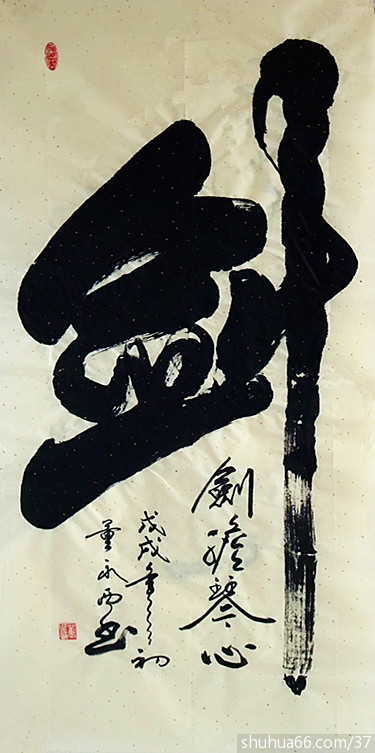 劍
劍膽琴心
戊戌年初
永書
shuhua66.com/37